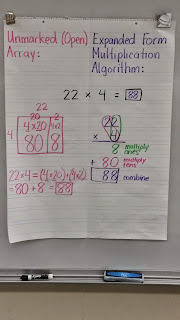 Unmarked (Open) Array:
Expanded Form Multiplication Algorithm:
22 × 4 = 88
22
20 2
4 4×20 4×2
80 8
22×4=(4×20)+(4×2)
=80+8=88
22
× 4
8 multiply ones
+ 80 multiply tens
88 combine